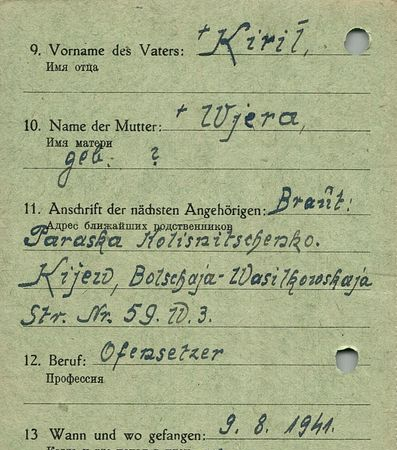 9. Vorname des Vaters: + Kiril,
Имя отца
10. Name der Mutter: + Wjera,
Имя матери
geb. ?
11. Anschrift der nächsten Angehörigen: Braut:
Адрес ближайших родственников
Paraska Kolisnitschenko.
Kijew, Bolschaja-Wasilkowskaja
Str. Nr. 59. W. 3.
12. Beruf: Ofensetzer
Профессия
13 Wann und wo gefangen: 9. 8. 1941.